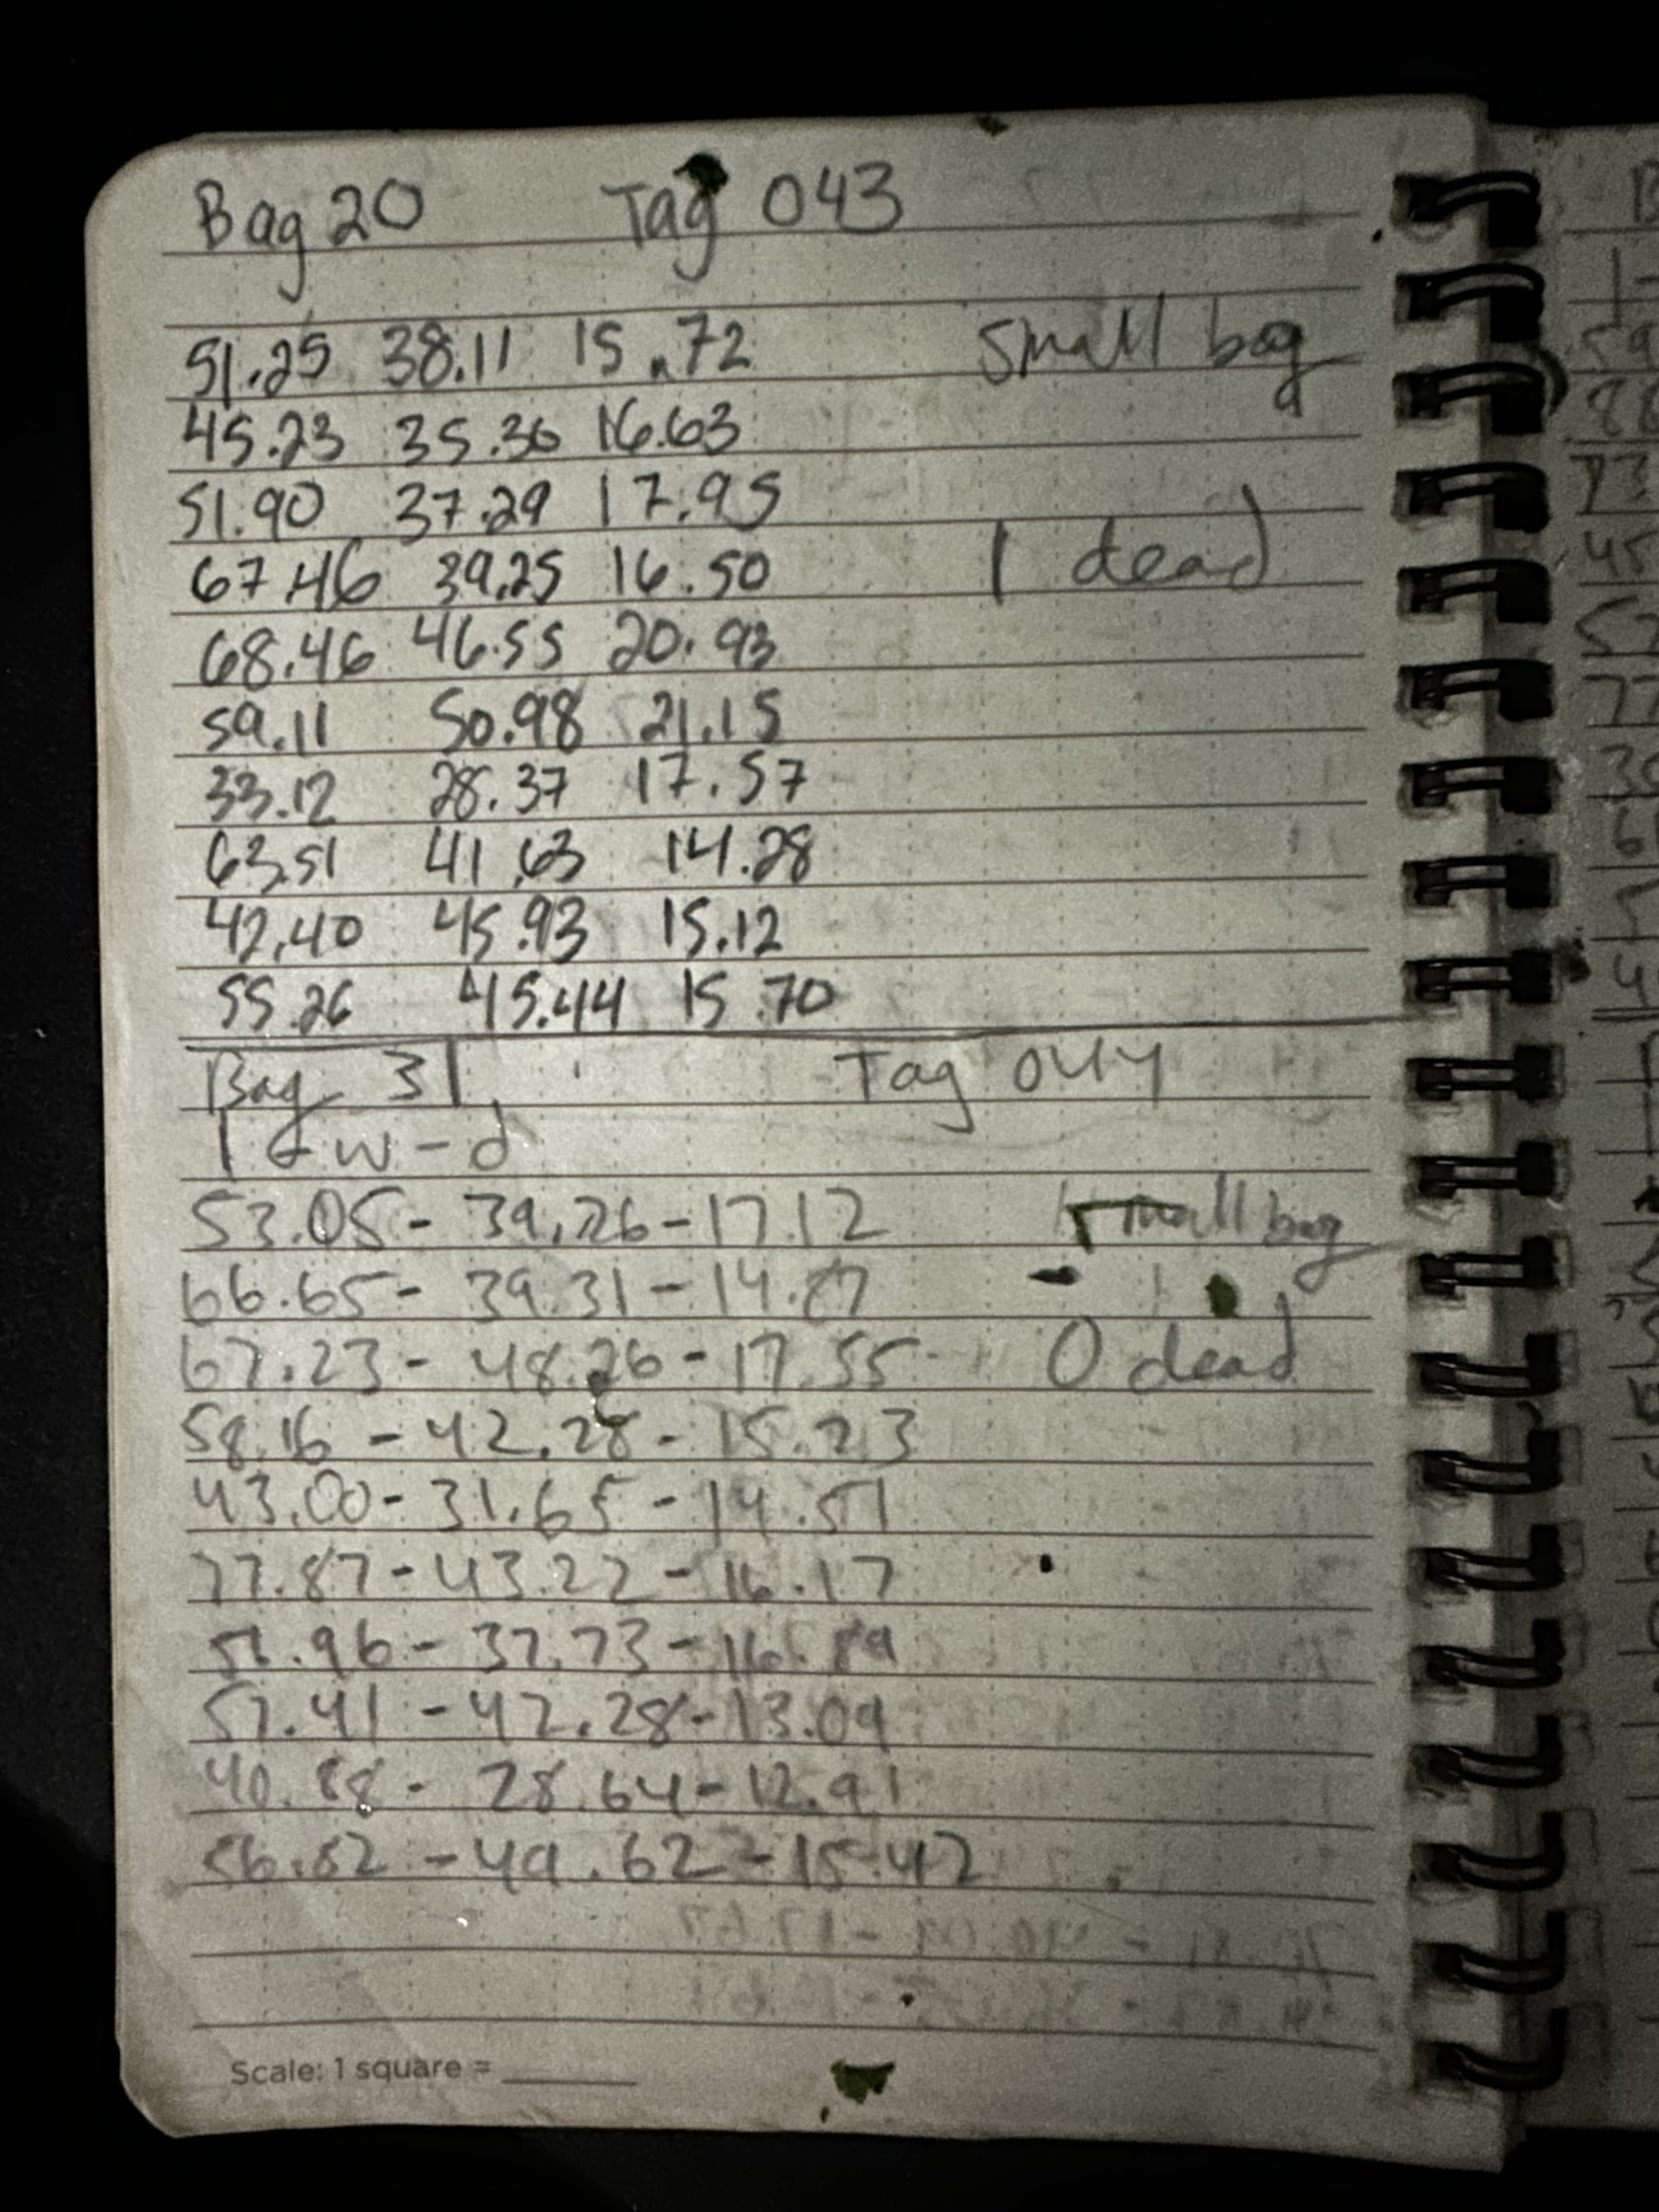 Bag 20 Tag 043
51.25 38.11 15.72 small bag
45.23 35.36 16.63
51.90 37.29 17.95
67.46 39.25 16.50 1 dead
68.46 46.55 20.93
59.11 50.98 21.15
33.12 28.37 17.57
63.51 41.63 14.28
42.40 45.93 15.12
55.26 45.44 15.70
Bag 31 Tag 044
w - d
53.05 - 39.26 - 17.12 small bag
66.65 - 39.31 -
67.23 - 48.26 - 17.55 0 dead
58.16 - 42.28 - 15.23
43.00 - 31.65 - 14.51
77.87 - 43.22 - 16.17
- 37.73 - 16.89
57.41 - 42.28 - 13.09
40.88 - 28.64 - 12.91
- 49.62 - 15.42
Scale: 1 square =